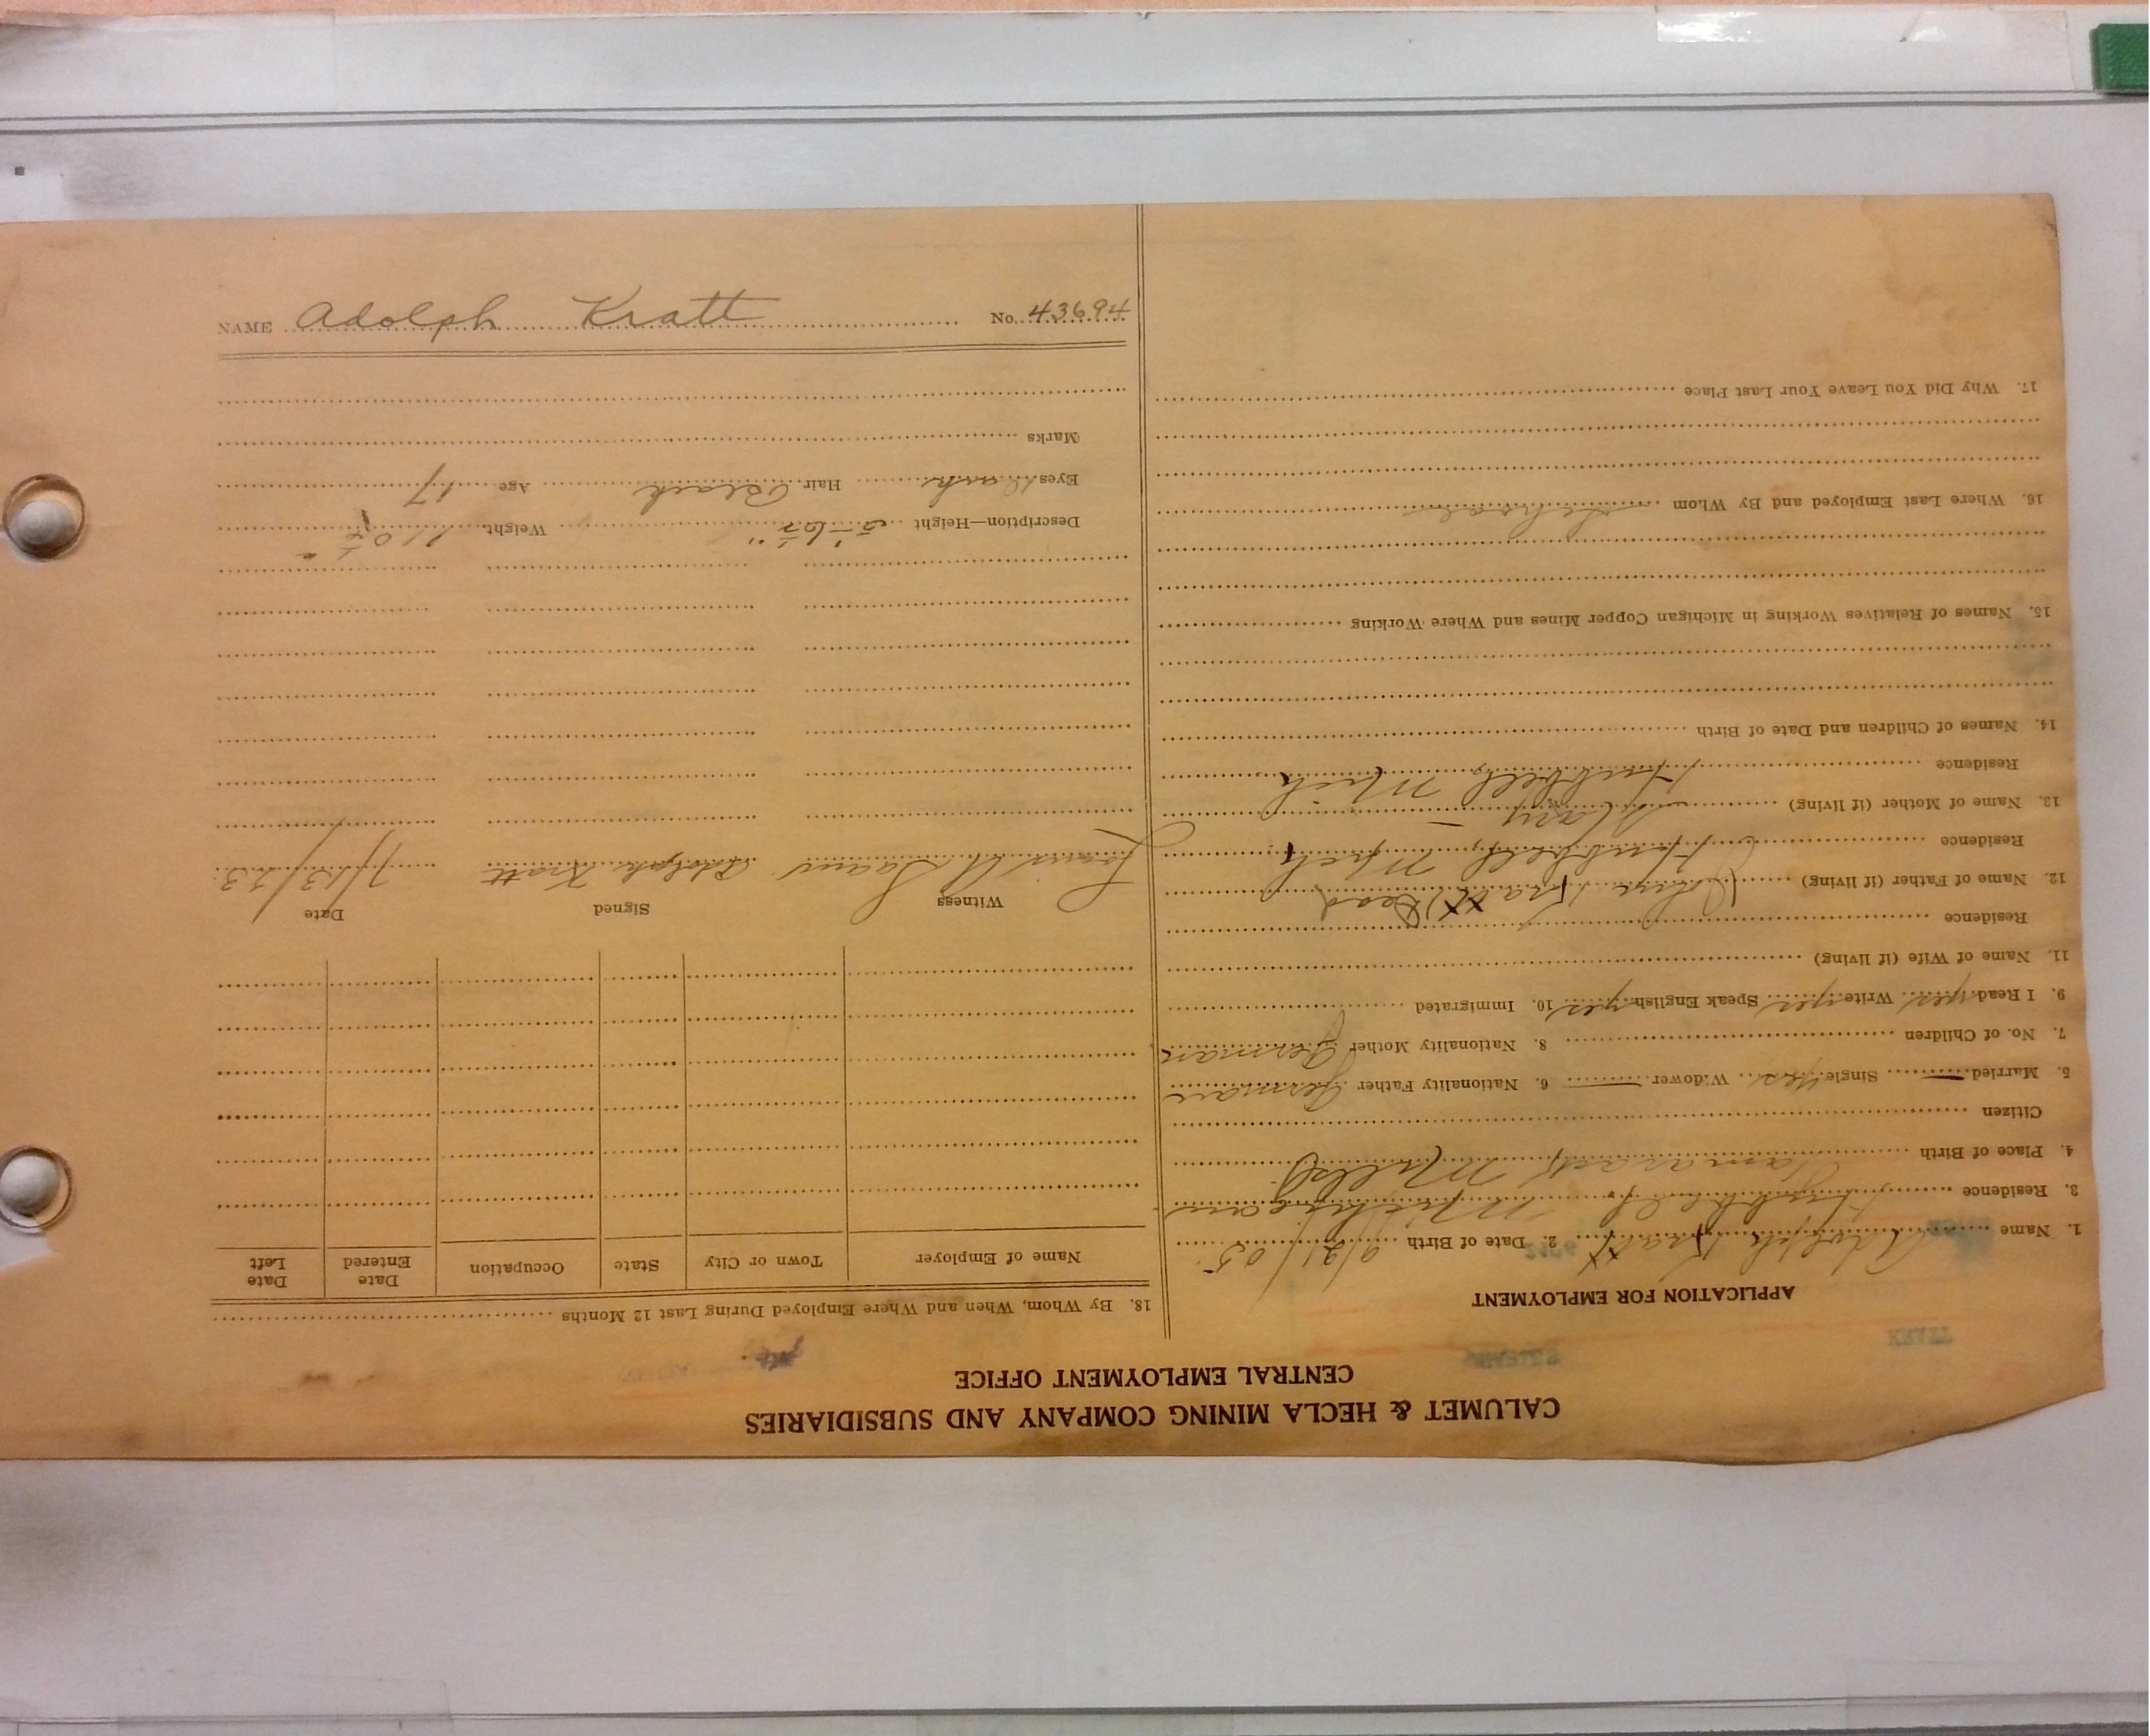 NAME Adolph Kratt No. 43694
CALUMET & HECLA MINING COMPANY AND SUBSIDIARIES
CENTRAL EMPLOYMENT OFFICE
APPLICATION FOR EMPLOYMENT
1. Name Adolph Kratt 2. Date of Birth 9/21/05
3. Residence Hubbell Michigan
4. Place of Birth Tamarack Mills
Citizen
5. Married — Single Yes Widower — 6. Nationality Father German
7. No. of Children 8. Nationality Mother German
9. I Read yes Write yes Speak English yes 10. Immigrated
11. Name of Wife (if living)
Residence
12. Name of Father (if living) John Kratt (Dead)
Residence Hubbell, Mich
13. Name of Mother (if living) Mary —
Residence Hubbell, Mich
14. Names of Children and Date of Birth
15. Names of Relatives Working in Michigan Copper Mines and Where Working
16. Where Last Employed and By Whom School
17. Why Did You Leave Your Last Place
18. By Whom, When and Where Employed During Last 12 Months
Name of Employer Town or City State Occupation Date Entered Date Left
Witness Signed Date
Louis Adolph Kratt 7/13/23.
Description—Height 5'-6½" Weight 110½
Eyes Dark Hair Black Age 17
Marks